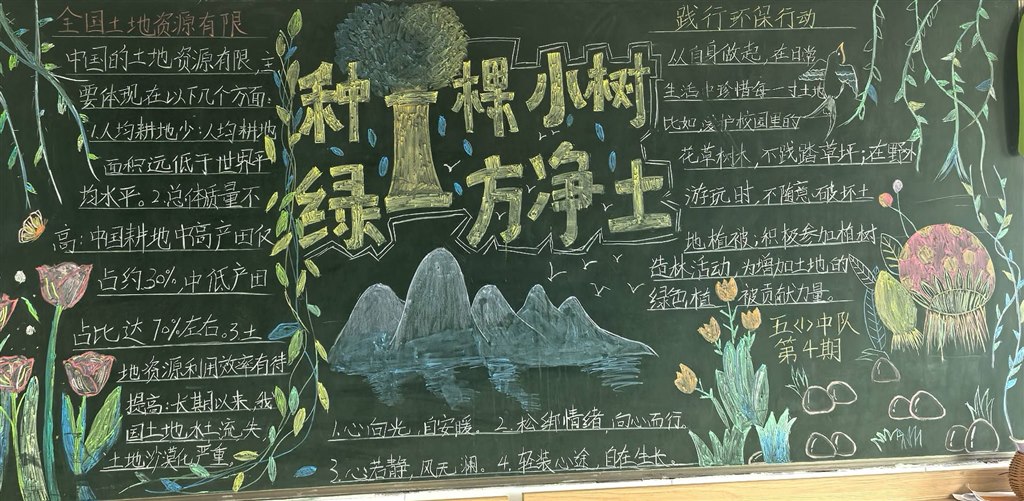 全国土地资源有限
中国的土地资源有限,主
要体现在以下几个方面:
1.人均耕地少:人均耕地
面积远低于世界平
均水平。2.总体质量不
高:中国耕地中高产田仅
占约30%,中低产田
占比达70%左右。3.土
地资源利用效率有待
提高:长期以来,我
国土地水土流失,
土地沙漠化严重。
种一棵小树
绿一方净土
1.心向光,自安暖。2.松绑情绪,向心而行。
3.心若静,风无澜。4.轻装心途,自在生长。
践行环保行动
从自身做起,在日常
生活中珍惜每一寸土地
比如,爱护校园里的
花草树木,不践踏草坪;在野外
游玩时,不随意破坏土
地植被;积极参加植树
造林活动,为增加土地的
绿色植被贡献力量。
五(1)中队
第4期